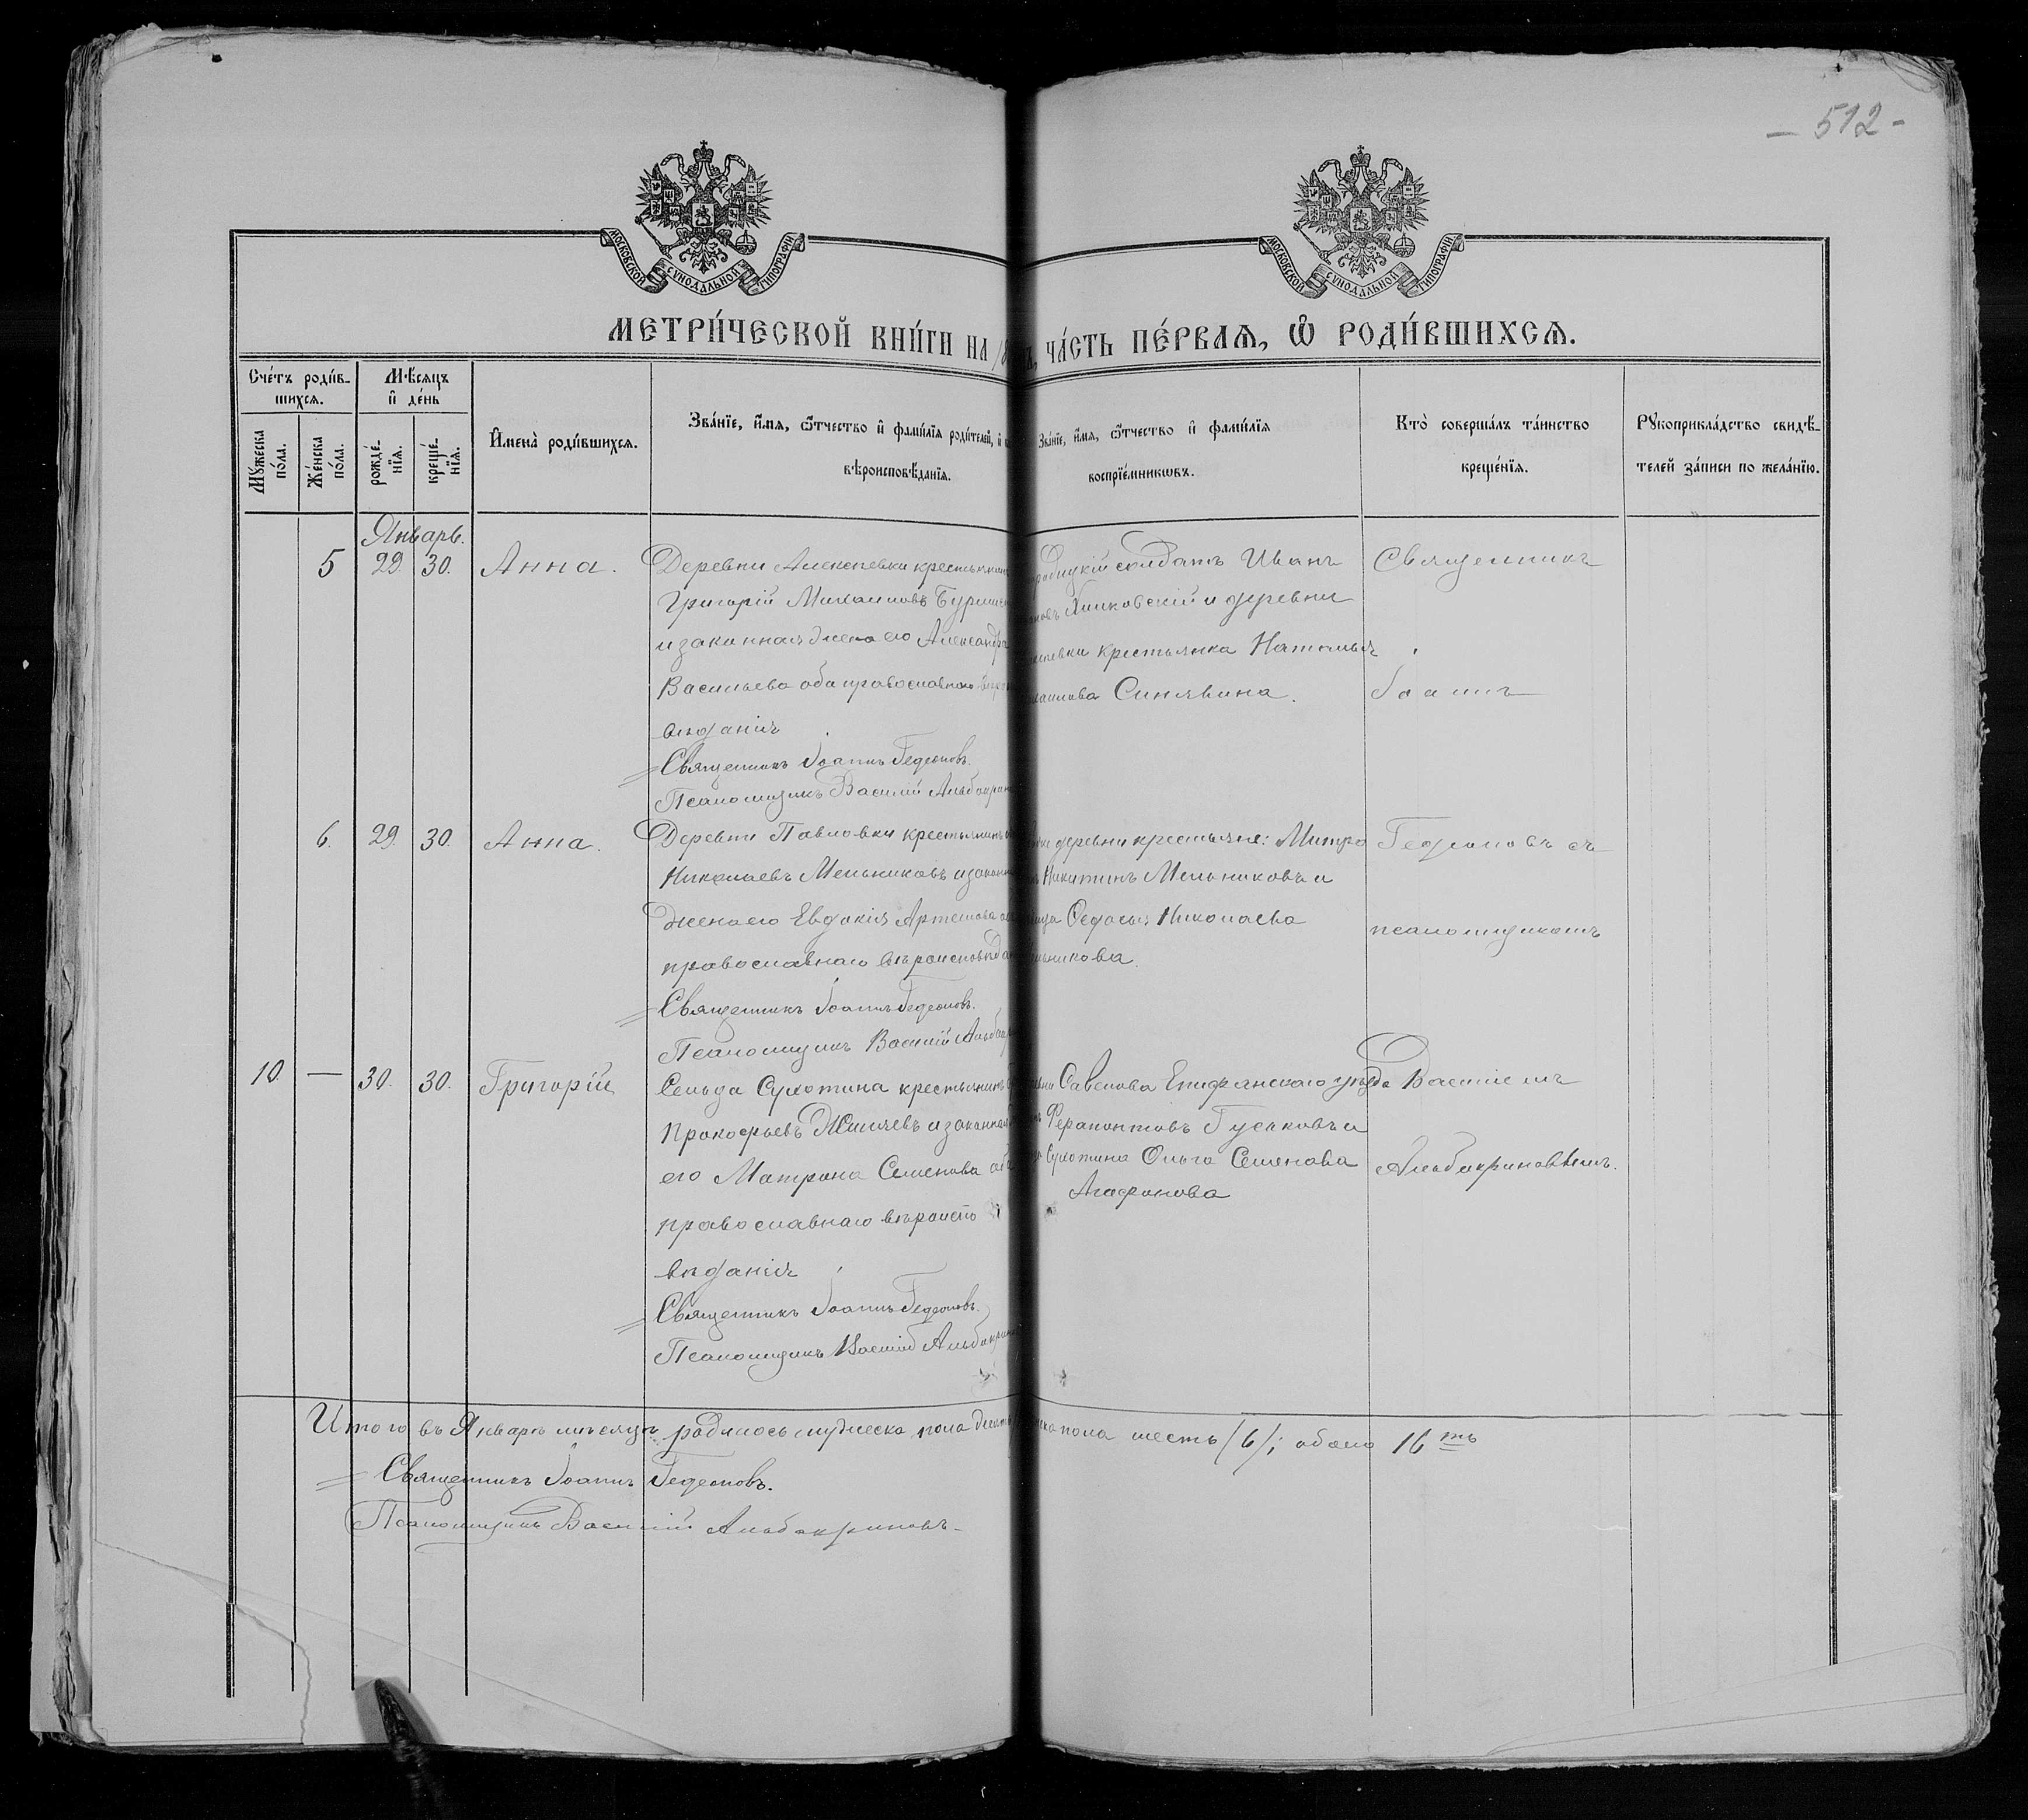 — 512 -
МОСКОВСКОЙ СѴНОДАЛЬНОЙ ТИПОГРАФІИ
МОСКОВСКОЙ СѴНОДАЛЬНОЙ ТИПОГРАФІИ
МЕТРИ́ЧЕСКОЙ КНИ́ГИ НА ЧА́СТЬ ПЕ́РВАѦ, Ѽ РОДИ́ВШИХСѦ.
Сче́тъ роди́в-
шихсѧ.
Мѣ́сѧцъ
и҆ де́нь
Мꙋ́жеска
по́ла.
Же́нска
по́ла.
рожде́-
нїѧ.
креще́-
нїѧ.
И҆мена̀ роди́вшихсѧ.
Зва́нїе, и҆́мѧ, ѻ҆́тчество и҆ фами́лїѧ роди́телей, и҆
вѣроисповѣ́данїѧ.
Зва́нїе, и҆́мѧ, ѻ҆́тчество и҆ фами́лїѧ
воспрїе́мникѡвъ.
Кто̀ соверша́лъ та́инство
креще́нїѧ.
Рꙋкоприкла́дство свидѣ́-
телей за́писи по жела́нїю.
Январь.
5 29. 30. Анна.
Деревни Алексѣевки крестьянинъ
Григорій Михаиловъ
и законная жена его Александра
Васильева оба православнаго
вѣданія
Священникъ Іоаннъ Гедеоновъ.
Псаломщикъ Василій Альбокриновъ
солдатъ Иванъ
Хилковскій и деревни
крестьянка Наталья
Синявина.
Священникъ
Іоаннъ
6. 29. 30. Анна.
Деревни Павловки крестьянинъ
Николаевъ Мельниковъ и законная
жена его Евдокія Артемова
православнаго вѣроисповѣданія
Священникъ Іоаннъ Гедеоновъ.
Псаломщикъ Василій
деревни крестьяне: Митро
Никитинъ Мельниковъ и
Ѳедосья Николаева
Мельникова.
Гедеоновъ съ
псаломщикомъ
10. — 30. 30. Григорій
Сельца Сухотина крестьянинъ
Прокофьевъ и законная
его Матрона Семенова оба
православнаго вѣроиспо
вѣданія
Священникъ Іоаннъ Гедеоновъ.
Псаломщикъ Василій
Савелова Епифанскаго уѣзда
Ферапонтовъ Гусаковъ и
Сухотина Ольга Семенова
Агафонова
Василіемъ
Альбокриновымъ.
Итого въ Январѣ мѣсяцѣ родилось мужеска пола десять пола шесть /6/; обоего 16ть
Священникъ Іоаннъ Гедеоновъ.
Псаломщикъ Василій Альбокриновъ